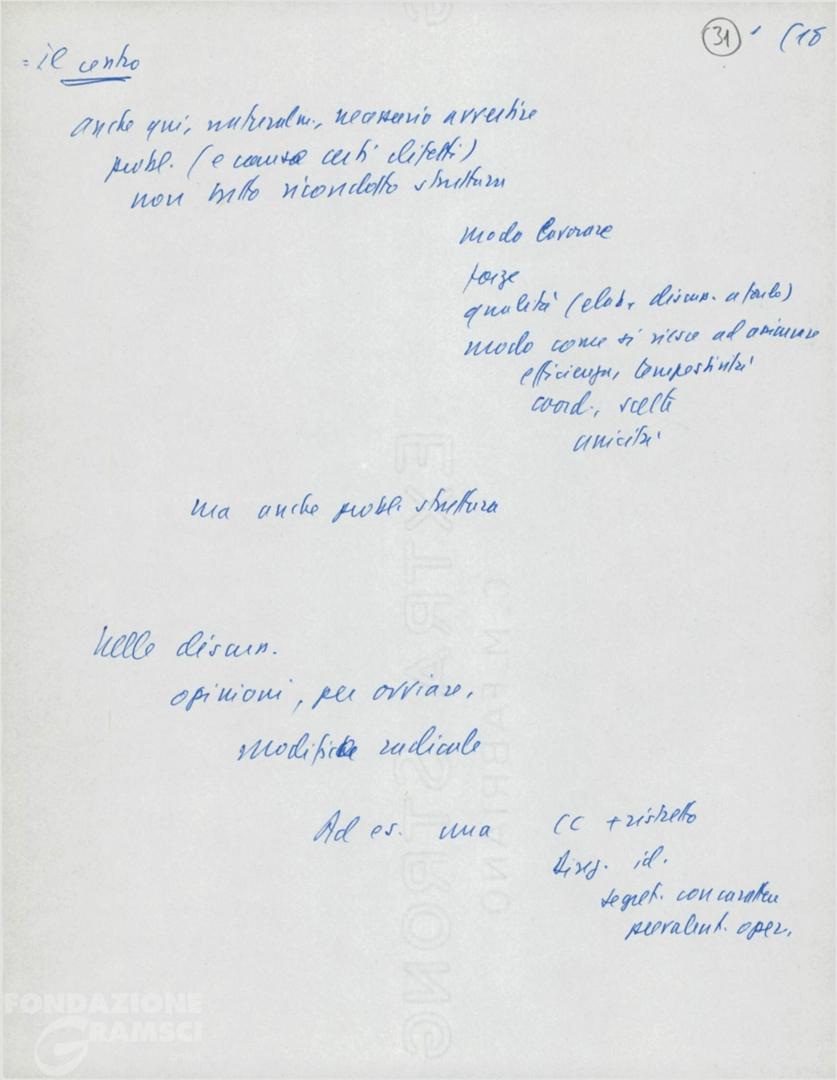 31 ' (18
= il centro
anche qui, naturalm., necessario avvertire
probl. (e cause certi difetti)
non tutto ricondotto struttura
modo lavorare
forze
qualità (elab., discuss. a fondo)
modo come si riesce ad assicurare
efficienza, tempestività
coord., scelte
unicità
ma anche probl. struttura
Nelle discuss.
opinioni, per ovviare,
modifiche radicale
Ad es. una CC + ristretto
Direz. id.
segret. con carattere
prevalent. oper.
EXTRA STRONG
C.M.FABRIANO
FONDAZIONE
GRAMSCI